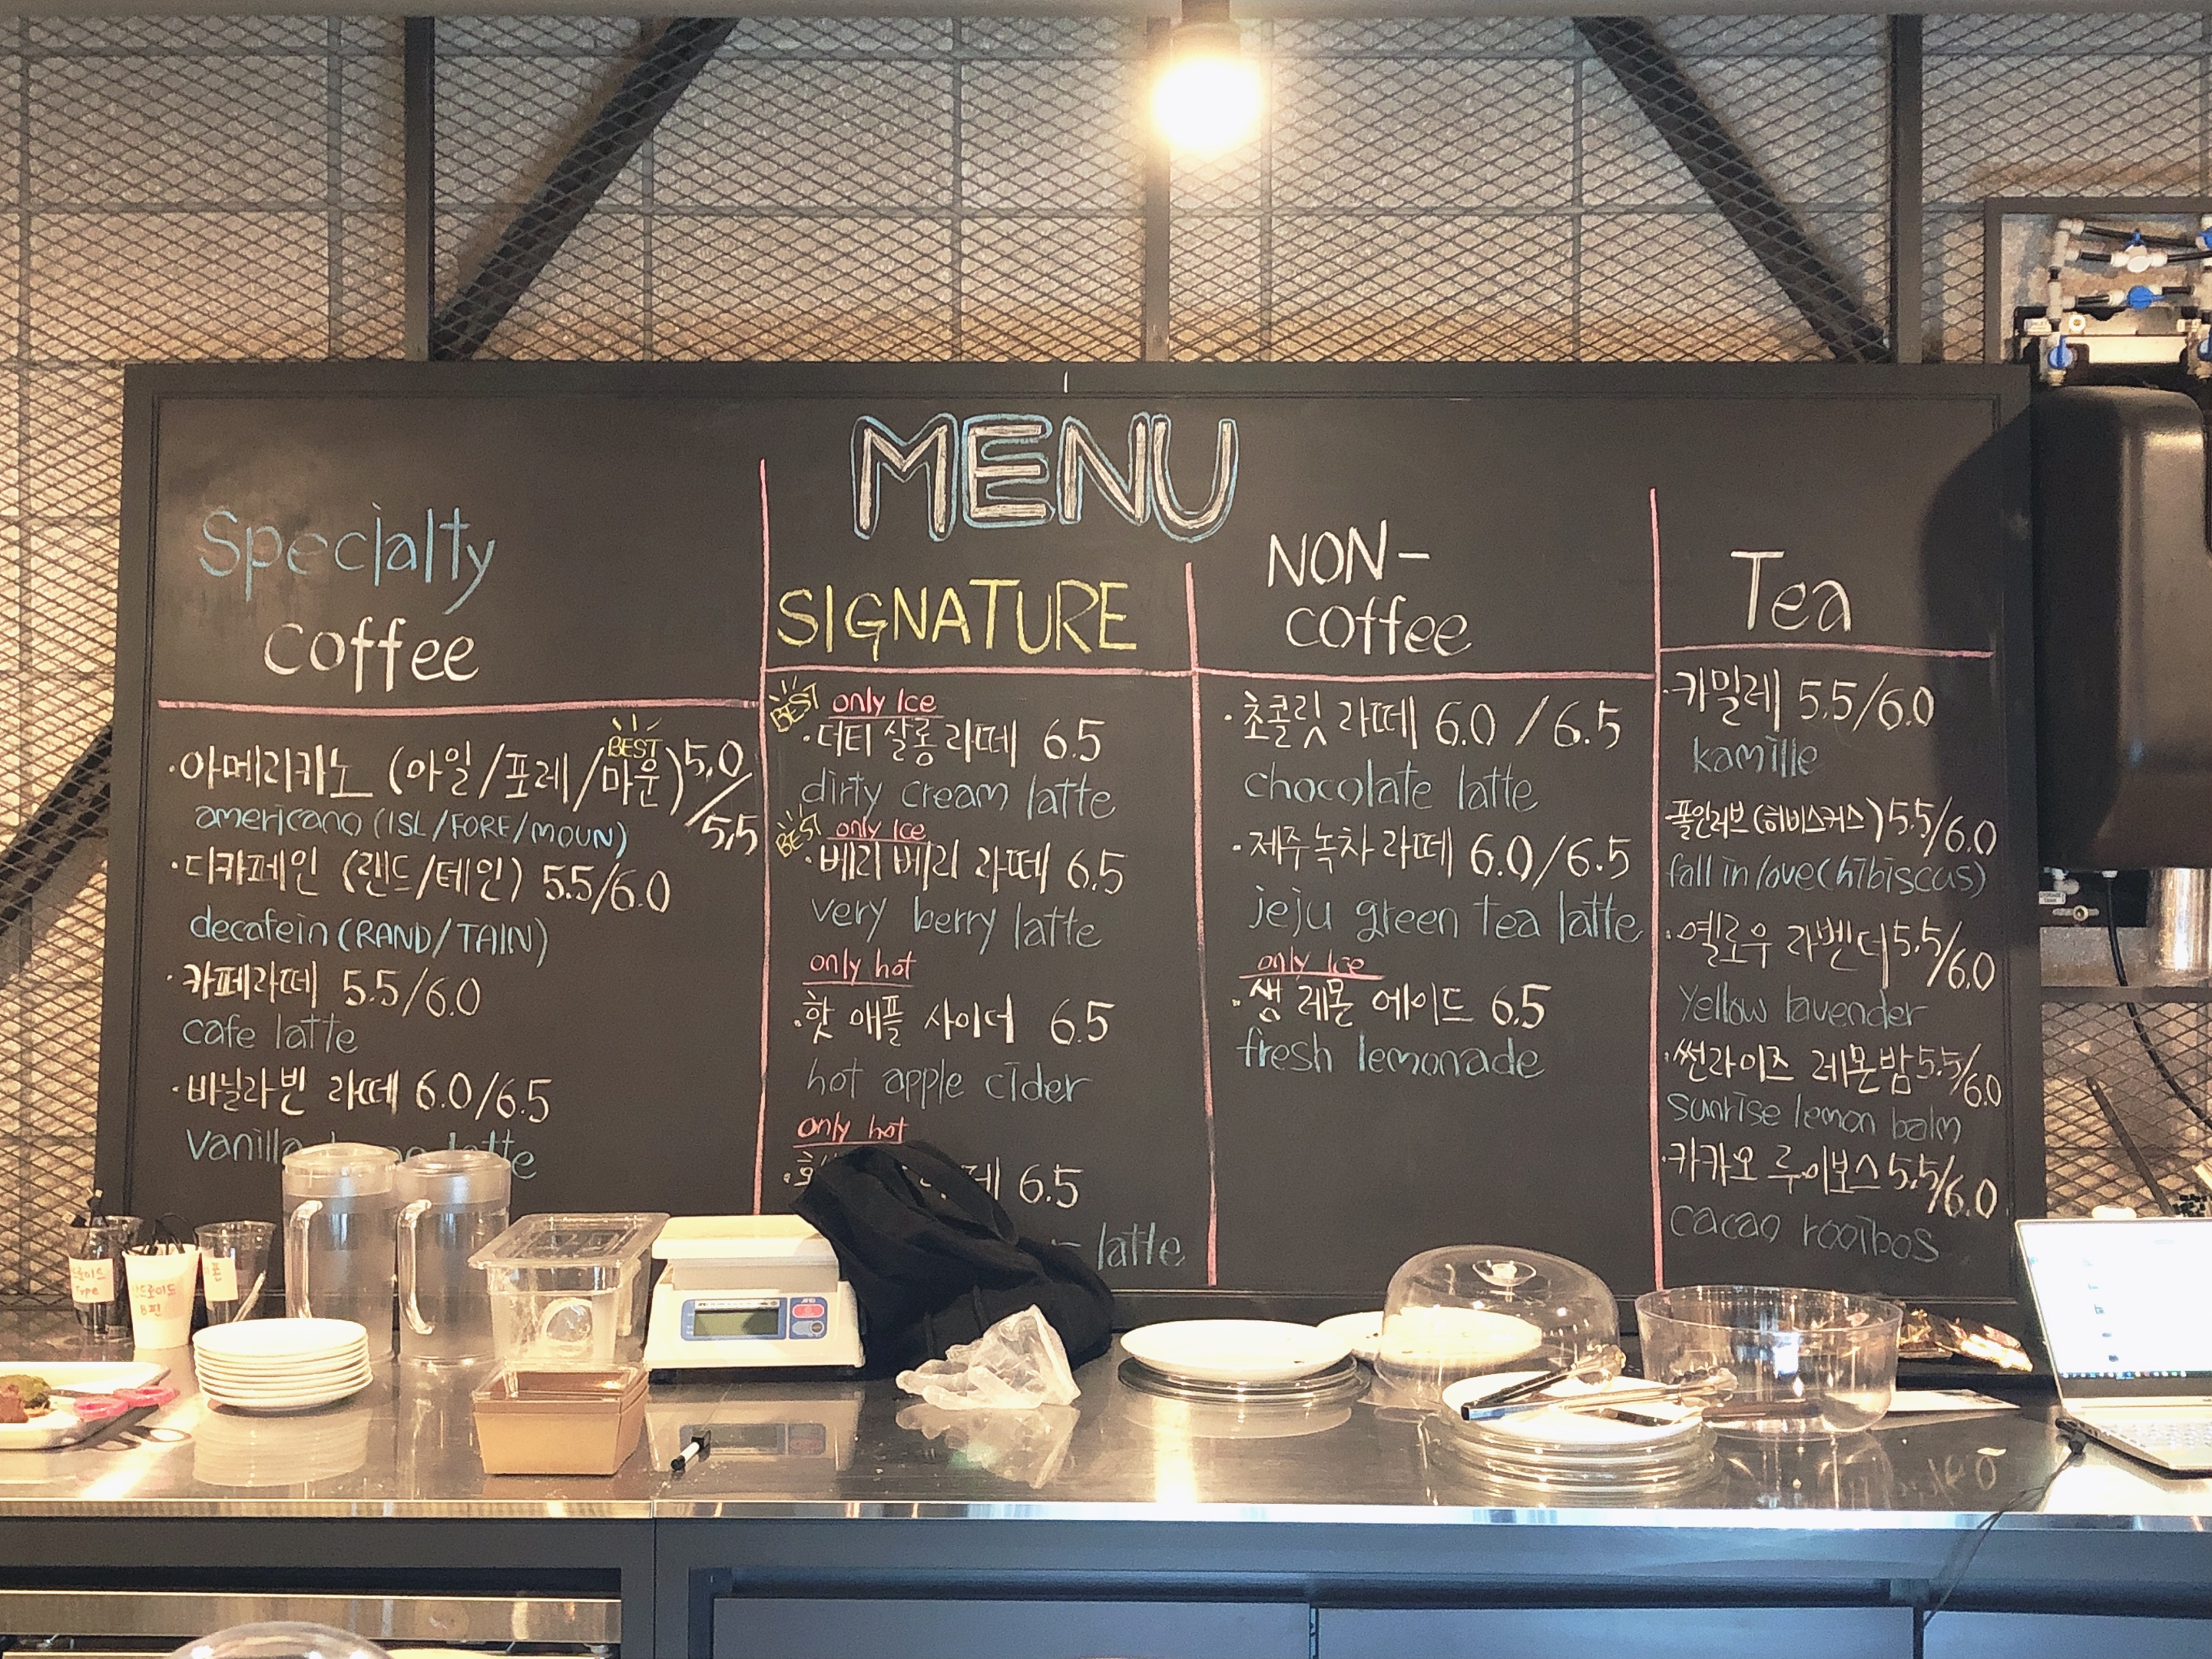 MENU
Specialty
coffee
BEST
·아메리카노 (아일/포레/마운) 5.0/5.5
americano (ISL/FORE/MOUN)
·디카페인 (랜드/테인) 5.5/6.0
decafein (RAND/TAIN)
·카페라떼 5.5/6.0
cafe latte
·바닐라빈 라떼 6.0/6.5
vanilla latte
SIGNATURE
BEST only Ice
·더티 살롱 라떼 6.5
dirty cream latte
BEST only Ice
·베리 베리 라떼 6.5
very berry latte
only hot
·핫 애플 사이더 6.5
hot apple cider
only hot
6.5
latte
NON-
coffee
·초콜릿 라떼 6.0 / 6.5
chocolate latte
·제주녹차 라떼 6.0/6.5
jeju green tea latte
only Ice
·생 레몬 에이드 6.5
fresh lemonade
Tea
·카밀레 5.5/6.0
kamille
·폴인러브 (히비스커스) 5.5/6.0
fall in love (hibiscus)
·옐로우 라벤더 5.5/6.0
Yellow lavender
·썬라이즈 레몬밤 5.5/6.0
sunrise lemon balm
·카카오 루이보스 5.5/6.0
cacao rooibos
Type
B핀
폰